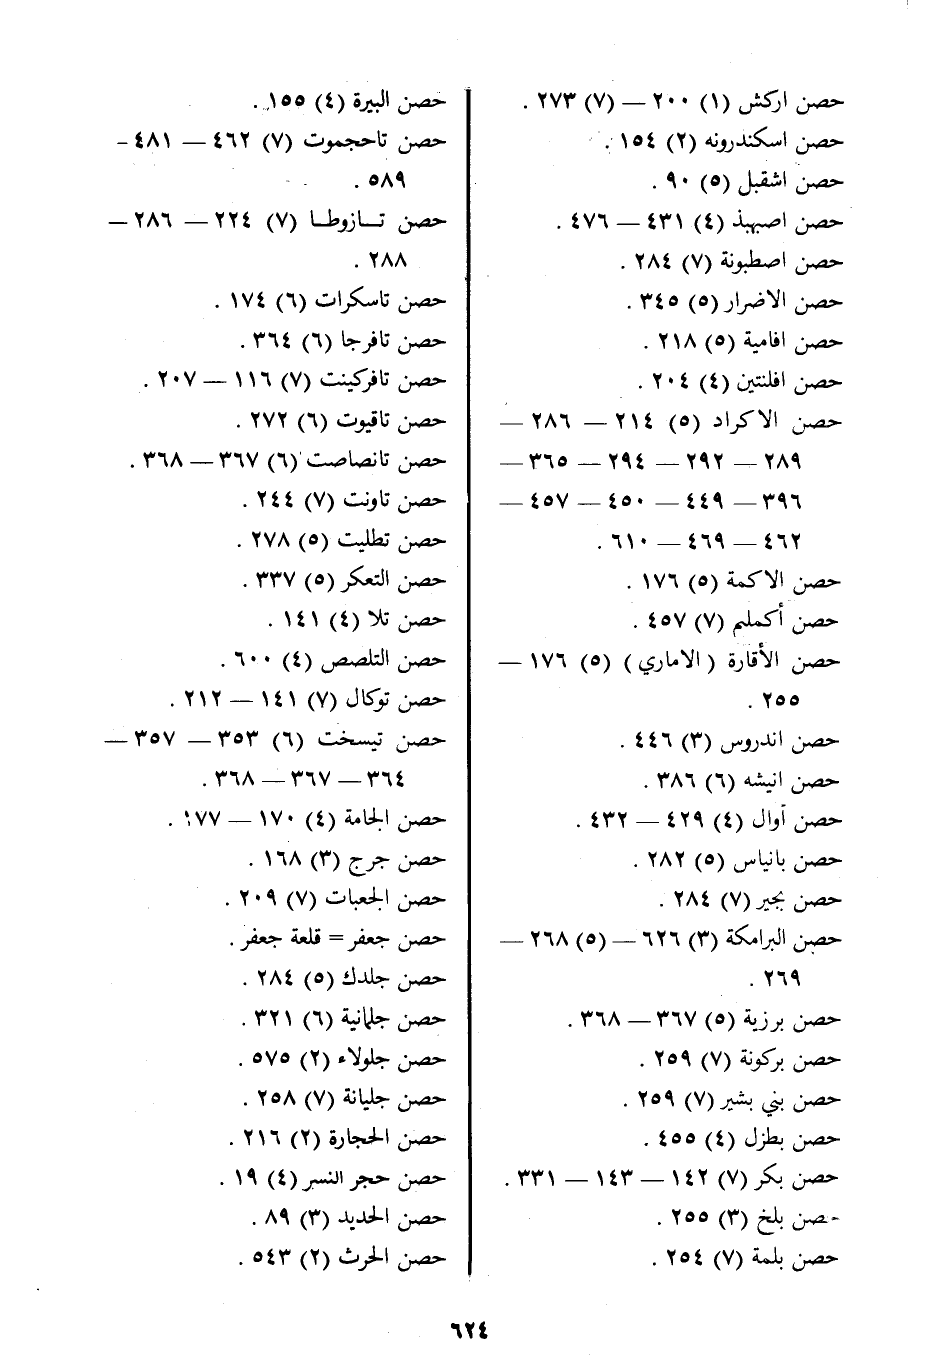 حصن اركش (١) ٢٠٠ — (٧) ٢٧٣ .
حصن اسكندرونه (٢) ١٥٤ .
حصن اشقبل (٥) ٩٠ .
حصن اصبهبذ (٤) ٤٣١ — ٤٧٦ .
حصن اصطبونة (٧) ٢٨٤ .
حصن الاضرار (٥) ٣٤٥ .
حصن افامية (٥) ٢١٨ .
حصن افلنتين (٤) ٢٠٤ .
حصن الاكراد (٥) ٢١٤ — ٢٨٦ —
٢٨٩ — ٢٩٢ — ٢٩٤ — ٣٦٥ —
٣٩٦ — ٤٤٩ — ٤٥٠ — ٤٥٧ —
٤٦٢ — ٤٦٩ — ٦١٠ .
حصن الاكمة (٥) ١٧٦ .
حصن أكملم (٧) ٤٥٧ .
حصن الأقارة ( الاماري ) (٥) ١٧٦ —
٢٥٥ .
حصن اندروس (٣) ٤٤٦ .
حصن انيشه (٦) ٣٨٦ .
حصن أوال (٤) ٤٢٩ — ٤٣٢ .
حصن بانياس (٥) ٢٨٢ .
حصن بجير (٧) ٢٨٤ .
حصن البرامكة (٣) ٦٢٦ — (٥) ٢٦٨ —
٢٦٩ .
حصن برزية (٥) ٣٦٧ — ٣٦٨ .
حصن بركونة (٧) ٢٥٩ .
حصن بني بشير (٧) ٢٥٩ .
حصن بطزل (٤) ٤٥٥ .
حصن بكر (٧) ١٤٢ — ١٤٣ — ٣٣١ .
حصن بلخ (٣) ٢٥٥ .
حصن بلمة (٧) ٢٥٤ .
حصن البيرة (٤) ١٥٥ .
حصن تاحجموت (٧) ٤٦٢ — ٤٨١ -
٥٨٩ .
حصن تــازوطــا (٧) ٢٢٤ — ٢٨٦ —
٢٨٨ .
حصن تاسكرات (٦) ١٧٤ .
حصن تافرجا (٦) ٣٦٤ .
حصن تافركينت (٧) ١١٦ — ٢٠٧ .
حصن تاقيوت (٦) ٢٧٢ .
حصن تانصاصت (٦) ٣٦٧ — ٣٦٨ .
حصن تاونت (٧) ٢٤٤ .
حصن تطليت (٥) ٢٧٨ .
حصن التعكر (٥) ٣٣٧ .
حصن تلا (٤) ١٤١ .
حصن التلصص (٤) ٦٠٠ .
حصن توكال (٧) ١٤١ — ٢١٢ .
حصن تيسخت (٦) ٣٥٣ — ٣٥٧ —
٣٦٤ — ٣٦٧ — ٣٦٨ .
حصن الجامة (٤) ١٧٠ — ١٧٧ .
حصن جرج (٣) ١٦٨ .
حصن الجعبات (٧) ٢٠٩ .
حصن جعفر = قلعة جعفر .
حصن جلدك (٥) ٢٨٤ .
حصن جلمانية (٦) ٣٢١ .
حصن جلولاء (٢) ٥٧٥ .
حصن جليانة (٧) ٢٥٨ .
حصن الحجارة (٢) ٢١٦ .
حصن حجر النسر (٤) ١٩ .
حصن الحديد (٣) ٨٩ .
حصن الحرث (٢) ٥٤٣ .
٦٢٤